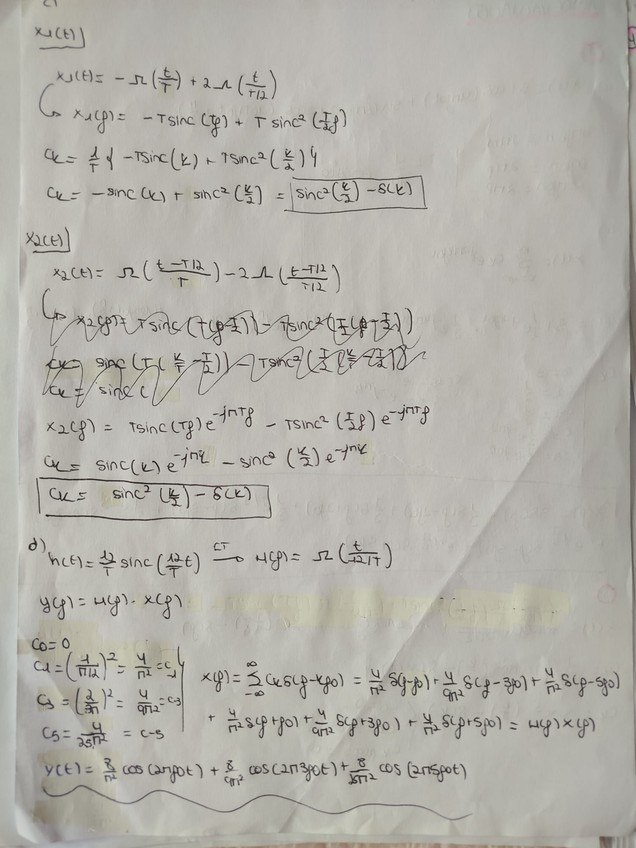 x₁(t)
x₁(t) = -Ω(t/T) + 2Λ(t/T/2)
x₁(f) = -Tsinc(Tf) + T sinc²(T/2 f)
Ck = 1/T { -Tsinc(k) + Tsinc²(k/2) }
Ck = -sinc(k) + sinc²(k/2) = sinc²(k/2) - δ(k)
x₂(t)
x₂(t) = Ω(t-T/2/T) - 2Λ(t-T/2/T/2)
Ck = sinc(
x₂(f) = Tsinc(Tf)e^-jπTf - Tsinc²(T/2 f)e^-jπTf
Ck = sinc(k)e^-jπk - sinc²(k/2)e^-jπk
Ck = sinc²(k/2) - δ(k)
d) h(t) = 12/T sinc(12/T t) CT→ H(f) = Ω(t/12/T)
y(f) = H(f) · x(f)
C0 = 0
C1 = (1/π/2)² = 4/π² = C-1
C3 = (2/3π)² = 4/9π² = C-3
C5 = 4/25π² = C-5
x(f) = ∑ -∞ ∞ Ck δ(f-kf0) = 4/π² δ(f-f0) + 4/9π² δ(f-3f0) + 4/π² δ(f-5f0)
+ 4/π² δ(f+f0) + 4/9π² δ(f+3f0) + 4/π² δ(f+5f0) = H(f) x(f)
y(t) = 8/π² cos(2πf0t) + 8/9π² cos(2π3f0t) + 8/25π² cos(2π5f0t)